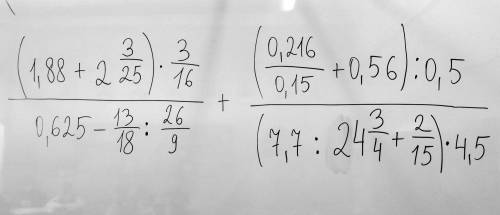 (1,88 + 2 3/25) · 3/16 / (0,625 - 13/18 : 26/9) + (0,216/0,15 + 0,56) : 0,5 / ((7,7 : 24 3/4 + 2/15) · 4,5)